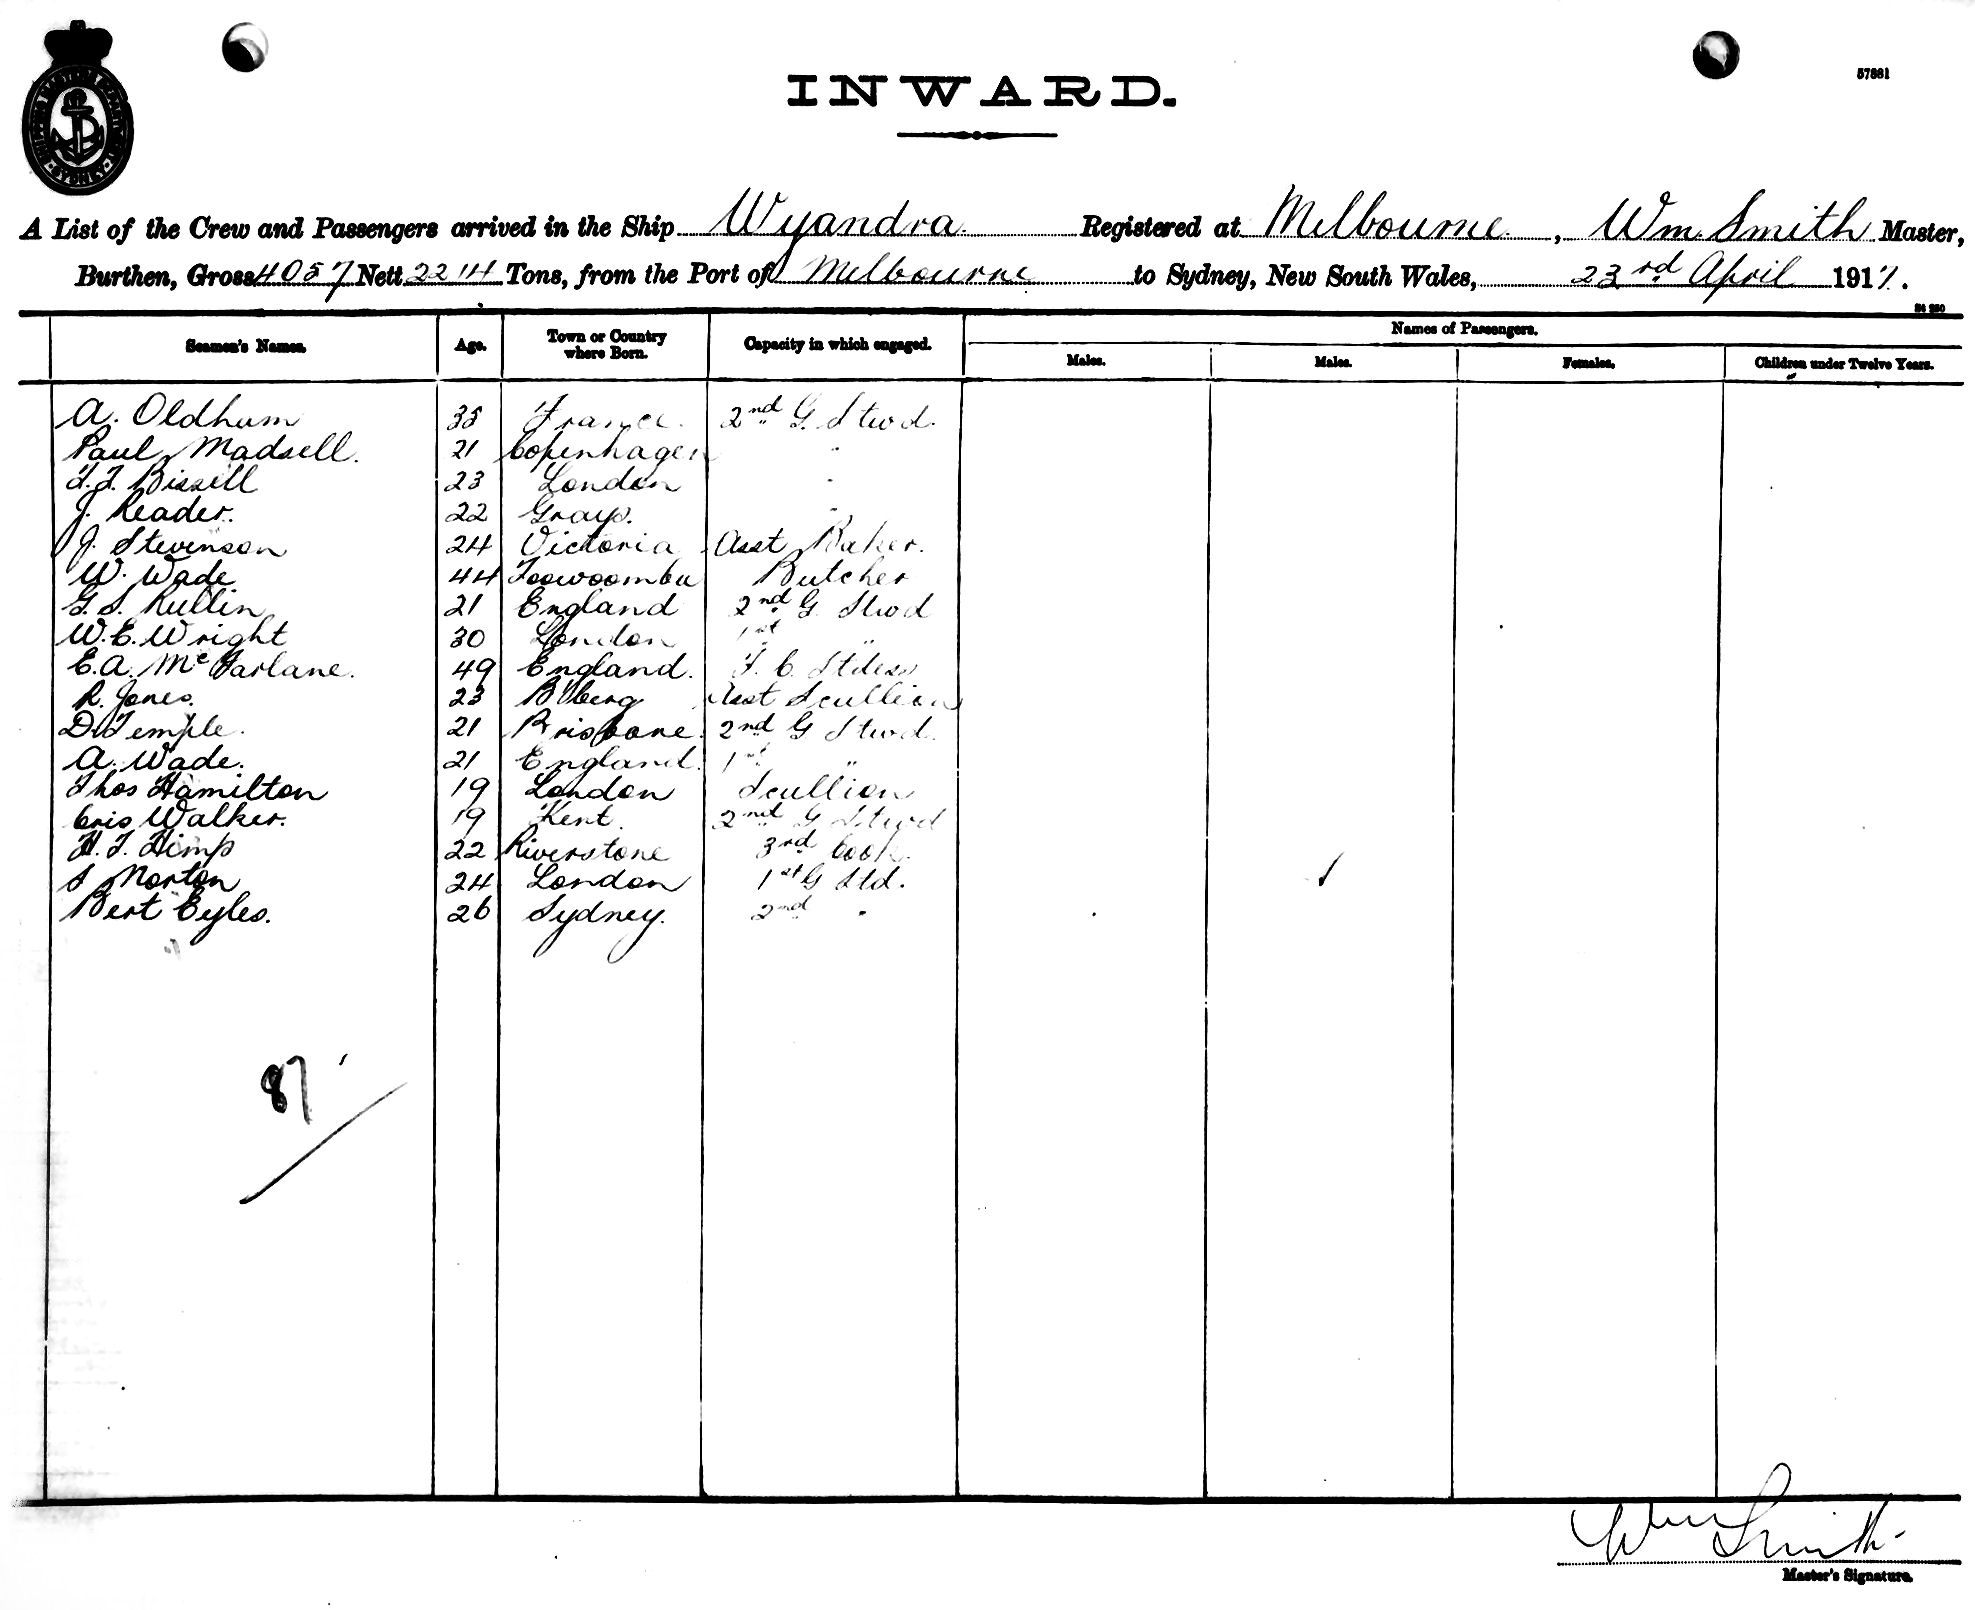 57881
INWARD.
SHIPPING MASTERS DEPARTMENT SYDNEY
A List of the Crew and Passengers arrived in the Ship Wyandra Registered at Melbourne, Wm. Smith Master,
Burthen, Gross 4057 Nett 2214 Tons, from the Port of Melbourne to Sydney, New South Wales, 23rd April 1917.
Names of Passengers.
Seamen's Names. Age. Town or Country where Born. Capacity in which engaged. Males. Males. Females. Children under Twelve Years.
A. Oldham 35 France. 2nd G. Stwd.
Paul Madsell. 21 Copenhagen "
F. F. Bissill 23 London "
J. Reader. 22 Grays. "
J. Stevenson 24 Victoria Asst Baker.
W. Wade 44 Toowoomba Butcher
G. S. Rullin 21 England 2nd G. Stwd
W. E. Wright 30 London 1st "
E. A. McFarlane. 49 England. F. C. Stdess
R. Jones. 23 Asst Scullion
D. Temple. 21 Brisbane. 2nd G Stwd.
A. Wade. 21 England. 1st "
Thos Hamilton 19 London Scullion
Cris Walker. 19 Kent. 2nd G Stwd
H. T. 22 Riverstone 3rd Cook.
S Norton 24 London 1st G Std.
Bert Eyles. 26 Sydney. 2nd "
87
Wm Smith
Master's Signature.